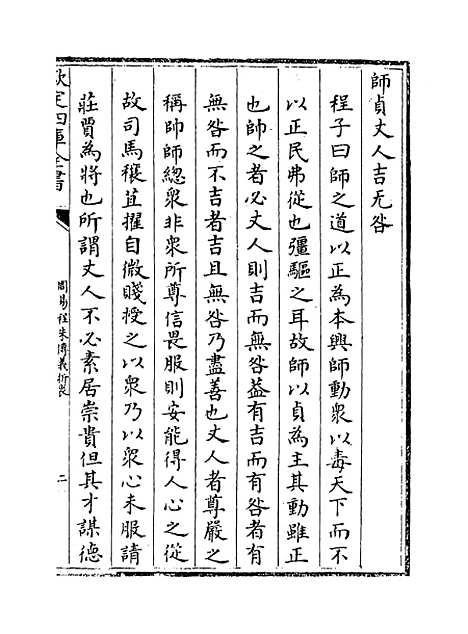 師貞丈人吉无咎
程子曰師之道以正為本興師動衆以毒天下而不
以正民弗從也彊驅之耳故師以貞為主其動雖正
也帥之者必丈人則吉而無咎葢有吉而有咎者有
無咎而不吉者吉且無咎乃盡善也丈人者尊嚴之
稱帥師總衆非衆所尊信畏服則安能得人心之從
故司馬穰苴擢自微賤授之以衆乃以衆心未服請
莊賈為將也所謂丈人不必素居崇貴但其才謀德
欽定四庫全書
周易程朱傳義折衷
二